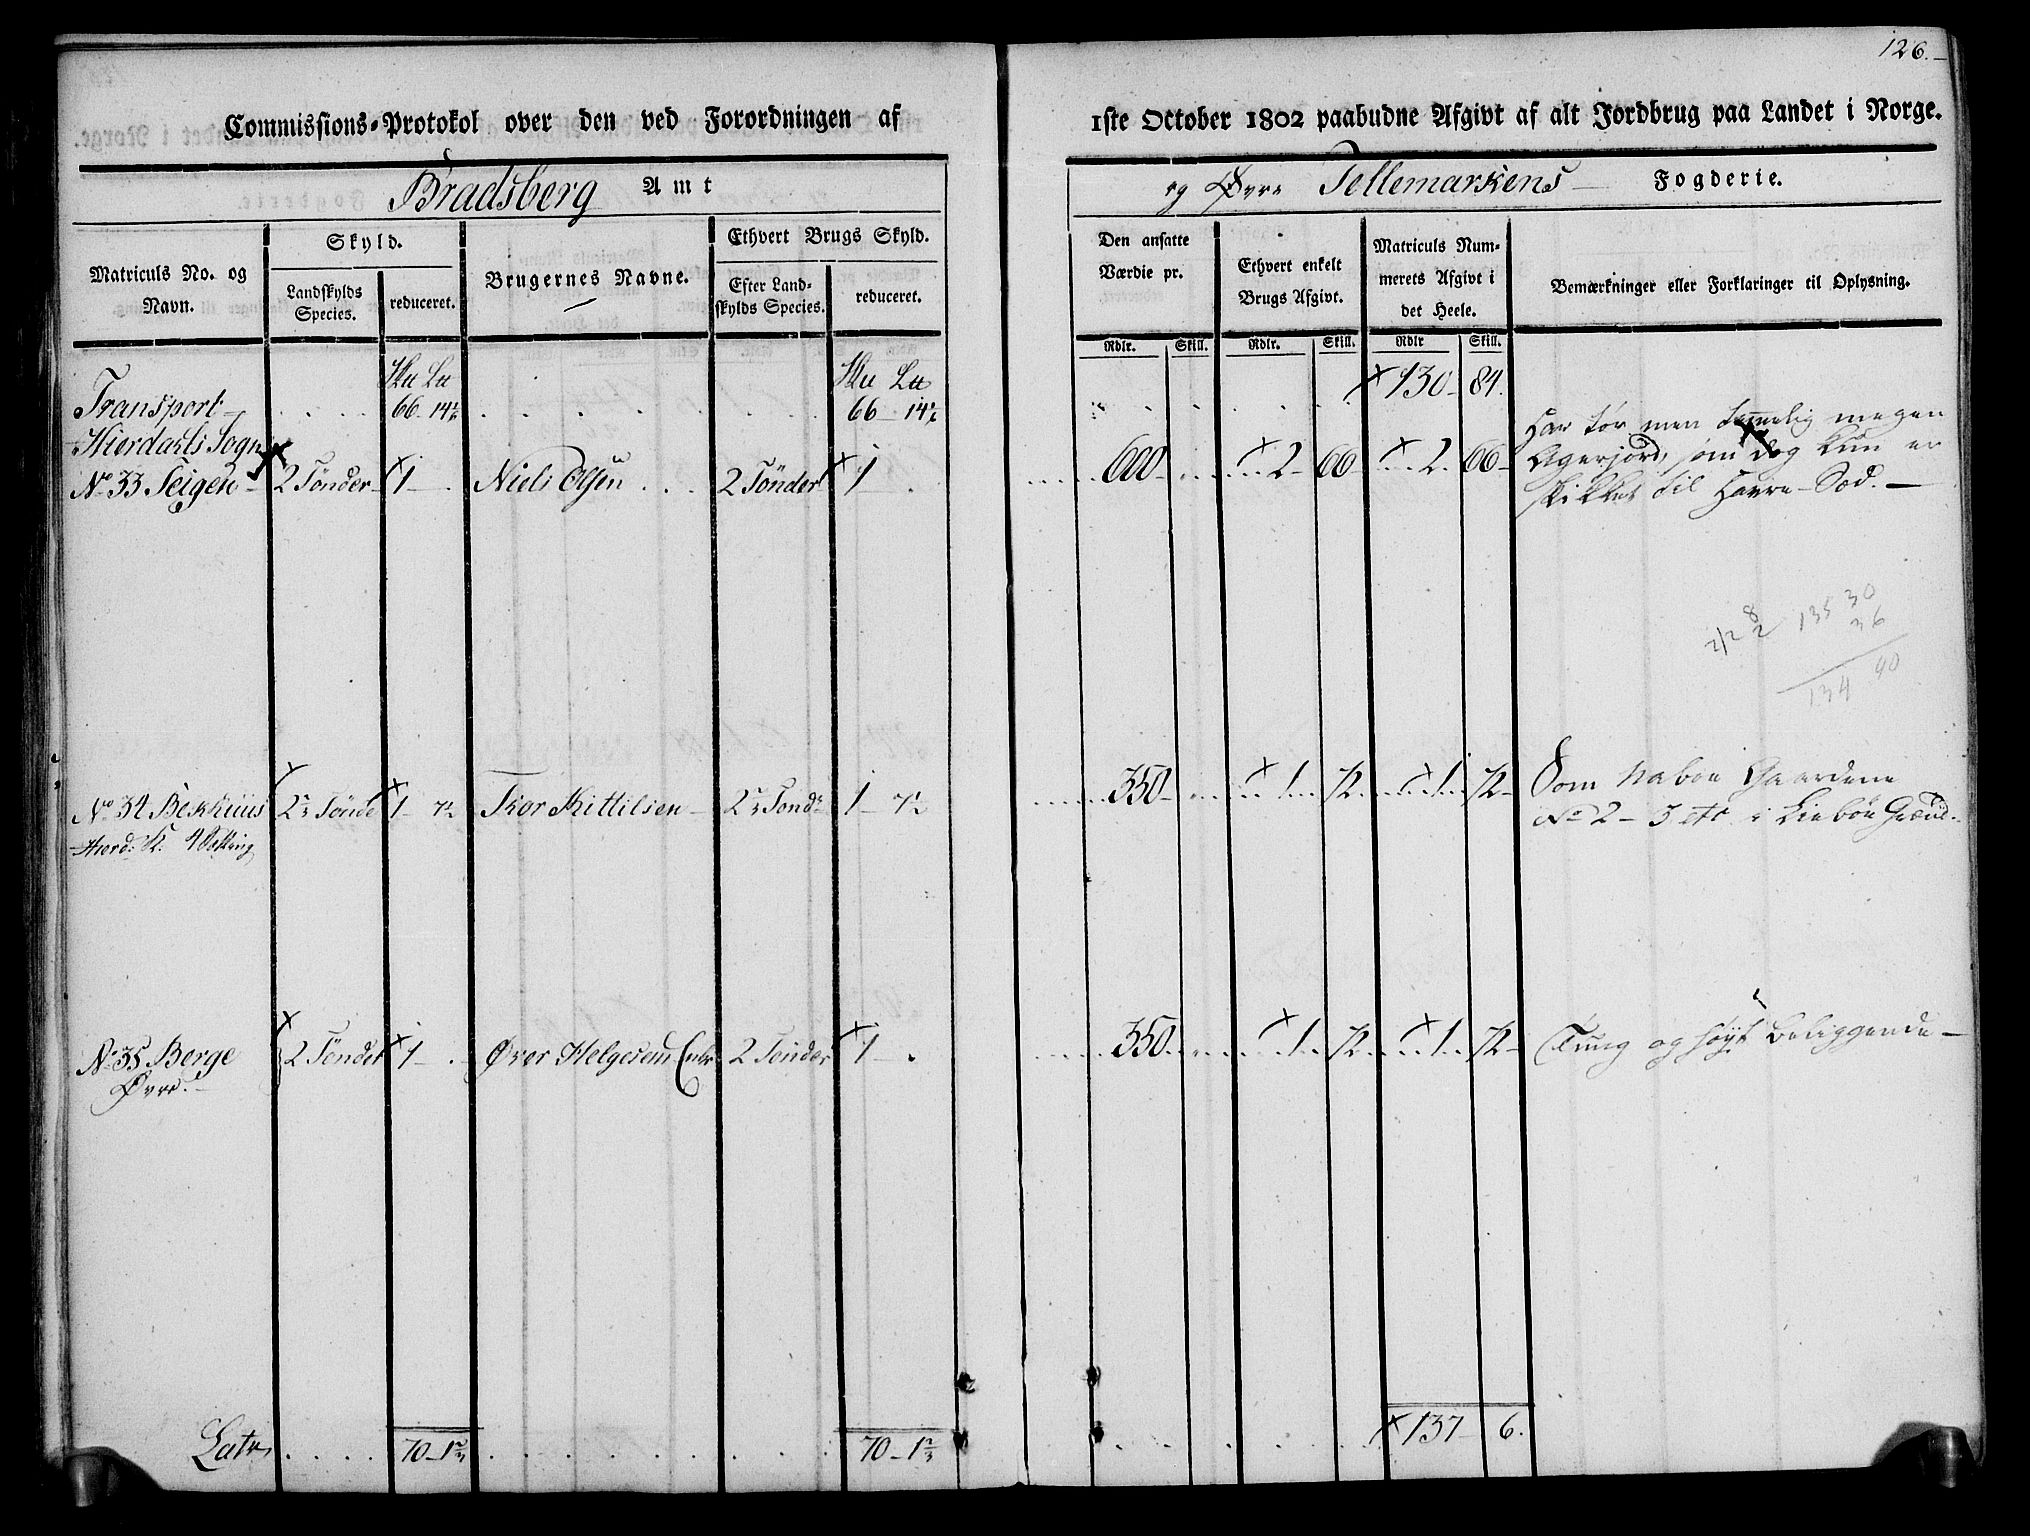 126.
Commissions-Protokol over den ved Forordningen af 1ste October 1802 paabudne Afgivt af alt Jordbrug paa Landet i Norge.
Bradsberg Amt og Øvre Tellemarkens Fogderie.
Matriculs No. og Navn.
Skyld.
Landskylds Species.
reduceret.
Brugernes Navne.
Ethvert Brugs Skyld.
Efter Landskylds Species.
reduceret.
Den ansatte Værdie pr.
Ethvert enkelt Brugs Afgivt.
Matriculs Nummerets Afgivt i det Heele.
Bemærkninger eller Forklaringer til Oplysning.
Rdlr. Skill. Rdlr. Skill. Rdlr Skill.
Transport 66 14½ 66 14½ 130 84.
Hierdahls Sogn
No 33 Teigen 2 Tønder 1 Niels Olsen 2 Tønder 1 600 2 66 2 66
Har tør men temelig megen
Agerjord, som dog kun er
skikket til Havre-Sæd.
2/2 8 2 135 30
36
134 90
No 34 Bekhuus 2½ Tønde 1 7½ Thor Kittilsen 2½ Tond 1 7½ 350 1 72 1 72
Som Naboe Gaardene
No 2 - 3 etc i
No 35 Berge 2 Tønder 1 Øver Helgesen Enke 2 Tønder 1 350 1 72 1 72
Tung og høyt beliggende
Øvre.
Latus 70 1⅔ 70 1⅔ 137 6.